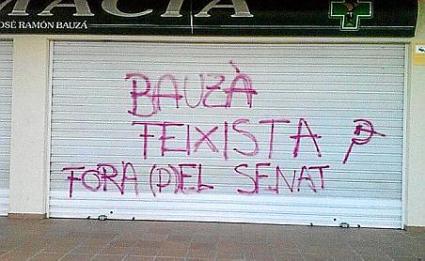 MACIA
JOSÉ RAMÓN BAUZÁ
BAUZÀ
FEIXISTA
FORA (P)EL SENAT